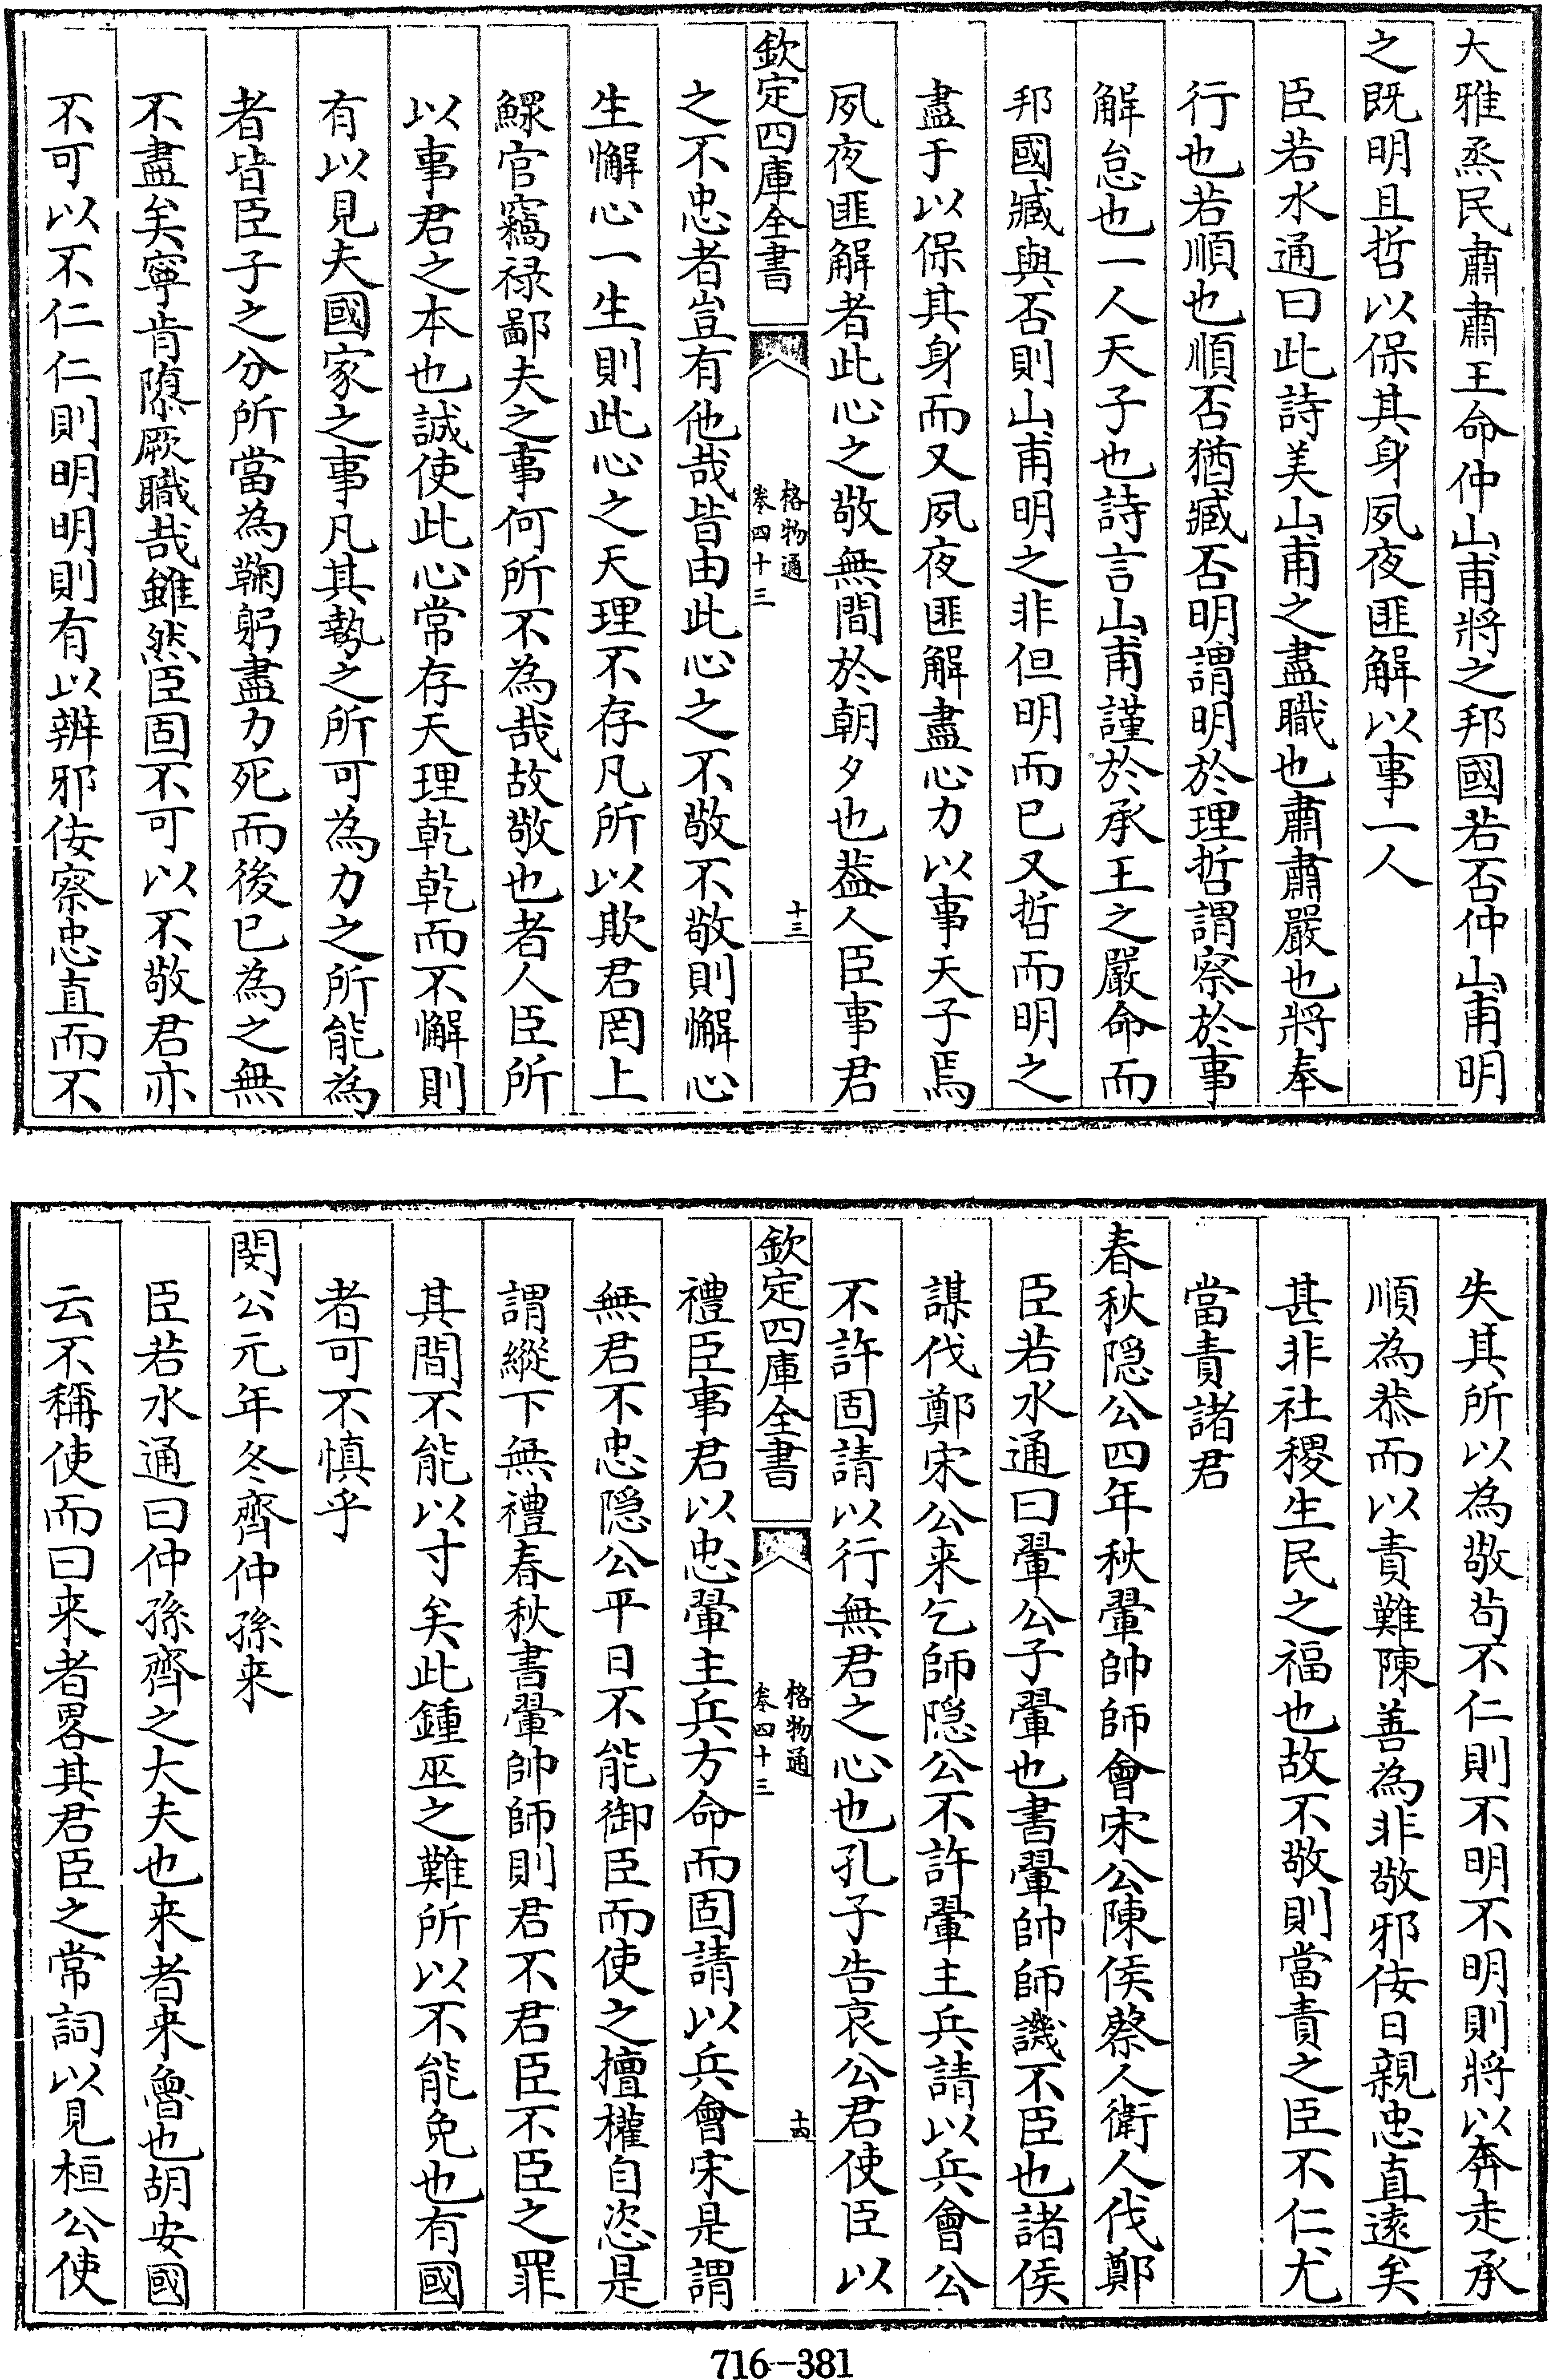 大雅烝民肅肅王命仲山甫將之邦國若否仲山甫明
之既明且哲以保其身夙夜匪解以事一人
臣若水通曰此詩美山甫之盡職也肅肅嚴也將奉
行也若順也順否猶臧否明謂明於理哲謂察於事
解怠也一人天子也詩言山甫謹於承王之嚴命而
邦國臧與否則山甫明之非但明而已又哲而明之
盡于以保其身而又夙夜匪解盡心力以事天子焉
夙夜匪解者此心之敬無間於朝夕也葢人臣事君
欽定四庫全書
格物通
卷四十三
十三
之不忠者豈有他哉皆由此心之不敬不敬則懈心
生懈心一生則此心之天理不存凡所以欺君罔上
鰥官竊禄鄙夫之事何所不為哉故敬也者人臣所
以事君之本也誠使此心常存天理乾乾而不懈則
有以見夫國家之事凡其勢之所可為力之所能為
者皆臣子之分所當為鞠躬盡力死而後已為之無
不盡矣寧肯隳厥職哉雖然臣固不可以不敬君亦
不可以不仁仁則明明則有以辨邪佞察忠直而不
失其所以為敬茍不仁則不明不明則將以奔走承
順為恭而以責難陳善為非敬邪佞日親忠直逺矣
甚非社稷生民之福也故不敬則當責之臣不仁尤
當責諸君
春秋隠公四年秋翬帥師會宋公陳侯蔡人衛人伐鄭
臣若水通曰翬公子翬也書翬帥師譏不臣也諸侯
謀伐鄭宋公来乞師隠公不許翬主兵請以兵會公
不許固請以行無君之心也孔子告哀公君使臣以
欽定四庫全書
格物通
卷四十三
十四
禮臣事君以忠翬主兵方命而固請以兵會宋是謂
無君不忠隠公平日不能御臣而使之擅權自恣是
謂縱下無禮春秋書翬帥師則君不君臣不臣之罪
其間不能以寸矣此鍾巫之難所以不能免也有國
者可不慎乎
閔公元年冬齊仲孫来
臣若水通曰仲孫齊之大夫也来者来魯也胡安國
云不稱使而曰来者畧其君臣之常詞以見桓公使
716-381